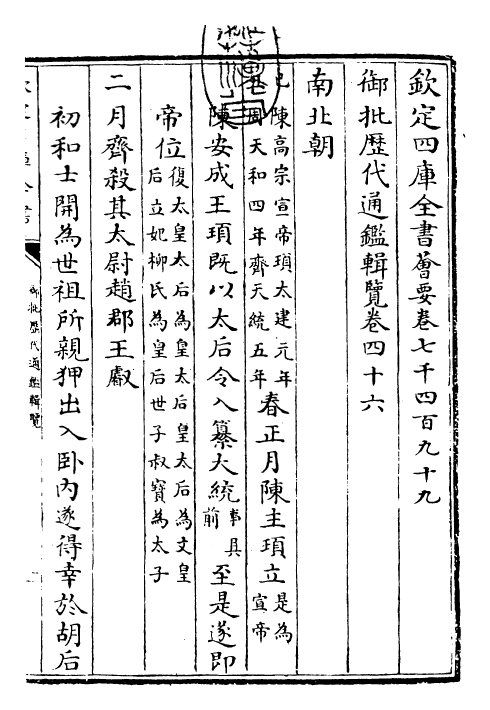 欽定四庫全書薈要卷七千四百九十九
御批歷代通鑑輯覽卷四十六
南北朝
陳高宗宣帝頊太建元年
周天和四年齊天統五年
春正月陳主頊立
是為
宣帝
陳安成王頊既以太后令入纂大統
事具
前
至是遂即
帝位
復太皇太后為皇太后皇太后為文皇
后立妃柳氏為皇后世子叔寶為太子
二月齊殺其太尉趙郡王叡
初和士開為世祖所親狎出入卧内遂得幸於胡后
御批歷代通鑑輯覽